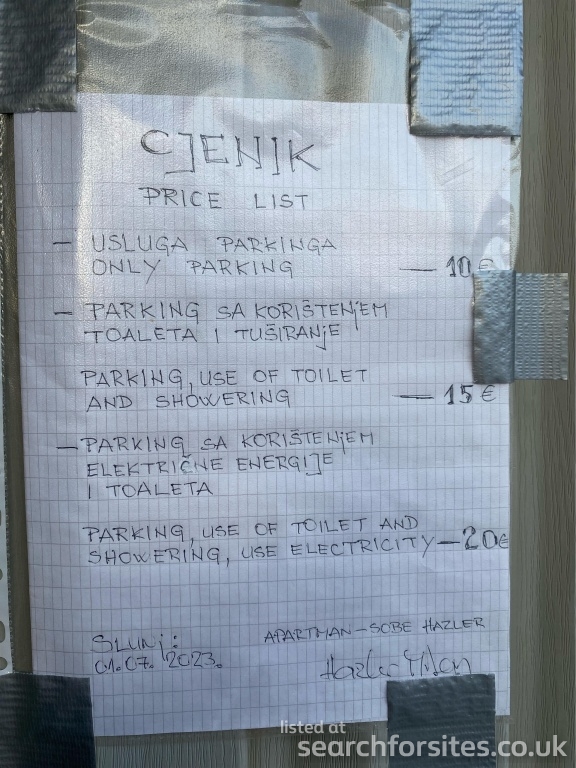 CJENIK
PRICE LIST
- USLUGA PARKINGA
ONLY PARKING — 10 €
- PARKING SA KORIŠTENJEM
TOALETA I TUŠIRANJE
PARKING, USE OF TOILET
AND SHOWERING — 15 €
- PARKING SA KORIŠTENJEM
ELEKTRIČNE ENERGIJE
I TOALETA
PARKING, USE OF TOILET AND
SHOWERING, USE ELECTRICITY — 20€
SLUNJ:
01.07. 2023.
APARTMAN-SOBE HAZLER
Hazler
listed at
searchforsites.co.uk